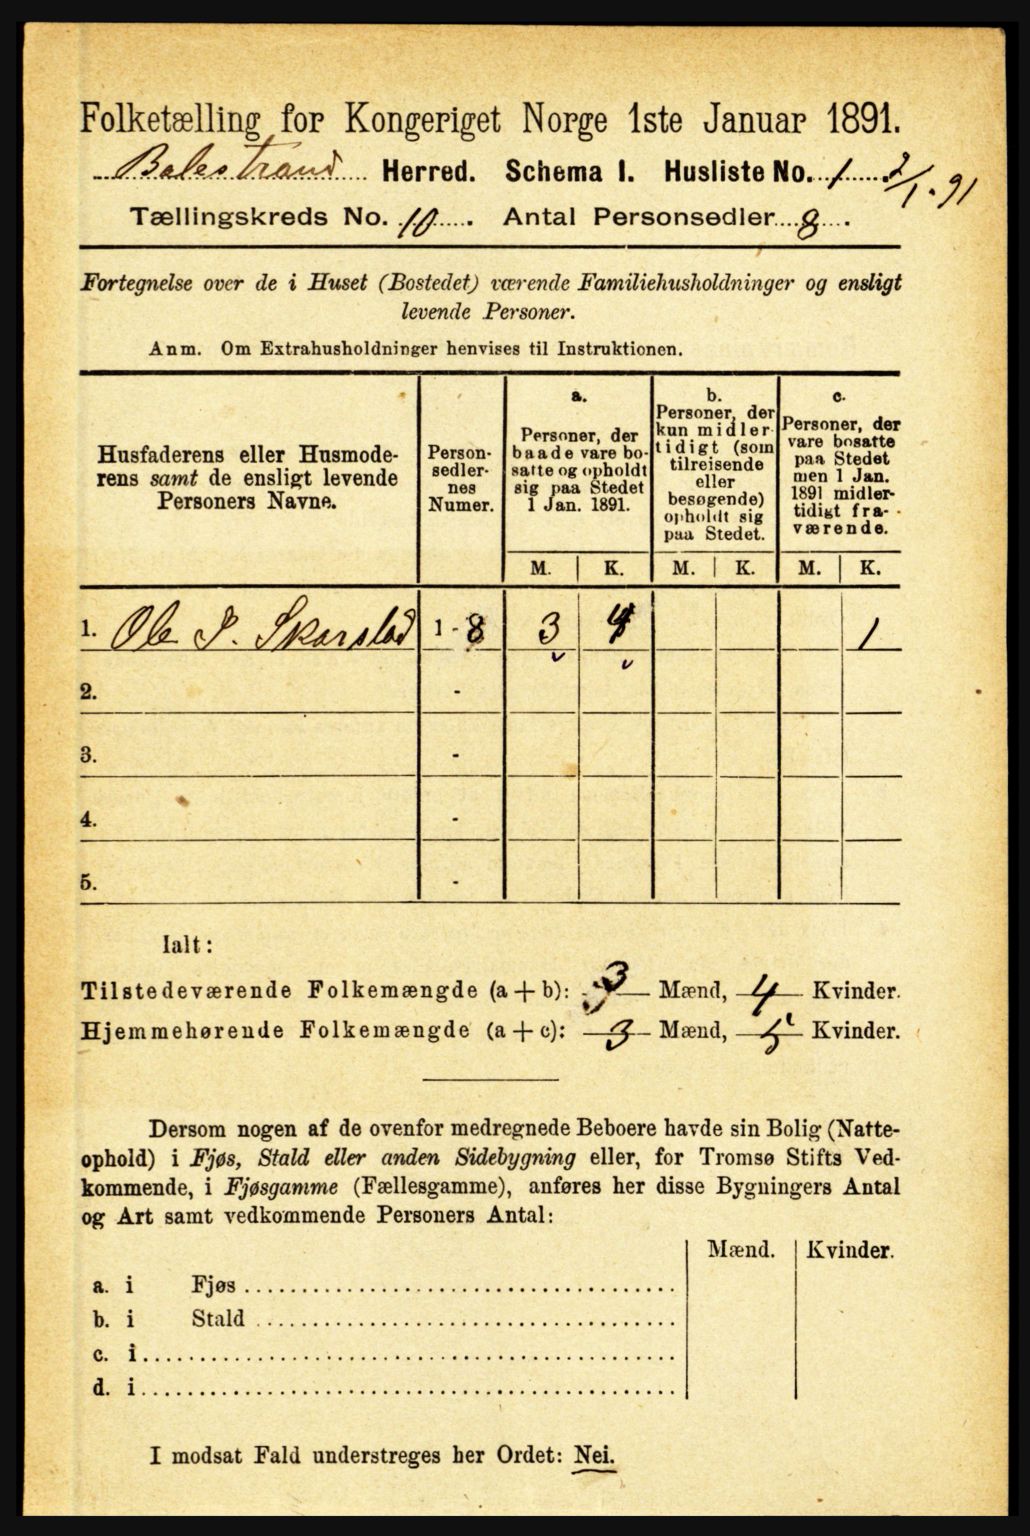 Folketælling for Kongeriget Norge 1ste Januar 1891.
Balestrand Herred. Schema I. Husliste No. 1 2/1.91
Tællingskreds No. 10. Antal Personsedler 8.
Fortegnelse over de i Huset (Bostedet) værende Familiehusholdninger og ensligt
levende Personer.
Anm. Om Extrahusholdninger henvises til Instruktionen.
Husfaderens eller Husmode-
rens samt de ensligt levende
Personers Navne.
Person-
sedler-
nes
Numer.
a.
Personer, der
baade vare bo-
satte og opholdt
sig paa Stedet
1 Jan. 1891.
b.
Personer, der
kun midler-
tidigt (som
tilreisende
eller
besøgende)
opholdt sig
paa Stedet.
c.
Personer, der
vare bosatte
paa Stedet
men 1 Jan.
1891 midler-
tidigt fra-
værende.
M. K. M. K. M. K.
1. Ole I. Skarstad 1 - 8 3 4 1
2. -
3. -
4. -
5. -
Ialt:
Tilstedeværende Folkemængde (a + b): 3 Mænd, 4 Kvinder.
Hjemmehørende Folkemængde (a + c): 3 Mænd, 5 Kvinder.
Dersom nogen af de ovenfor medregnede Beboere havde sin Bolig (Natte-
ophold) i Fjøs, Stald eller anden Sidebygning eller, for Tromsø Stifts Ved-
kommende, i Fjøsgamme (Fællesgamme), anføres her disse Bygningers Antal
og Art samt vedkommende Personers Antal:
Mænd. Kvinder.
a. i Fjøs
b. i Stald
c. i
d. i
I modsat Fald understreges her Ordet: Nei.